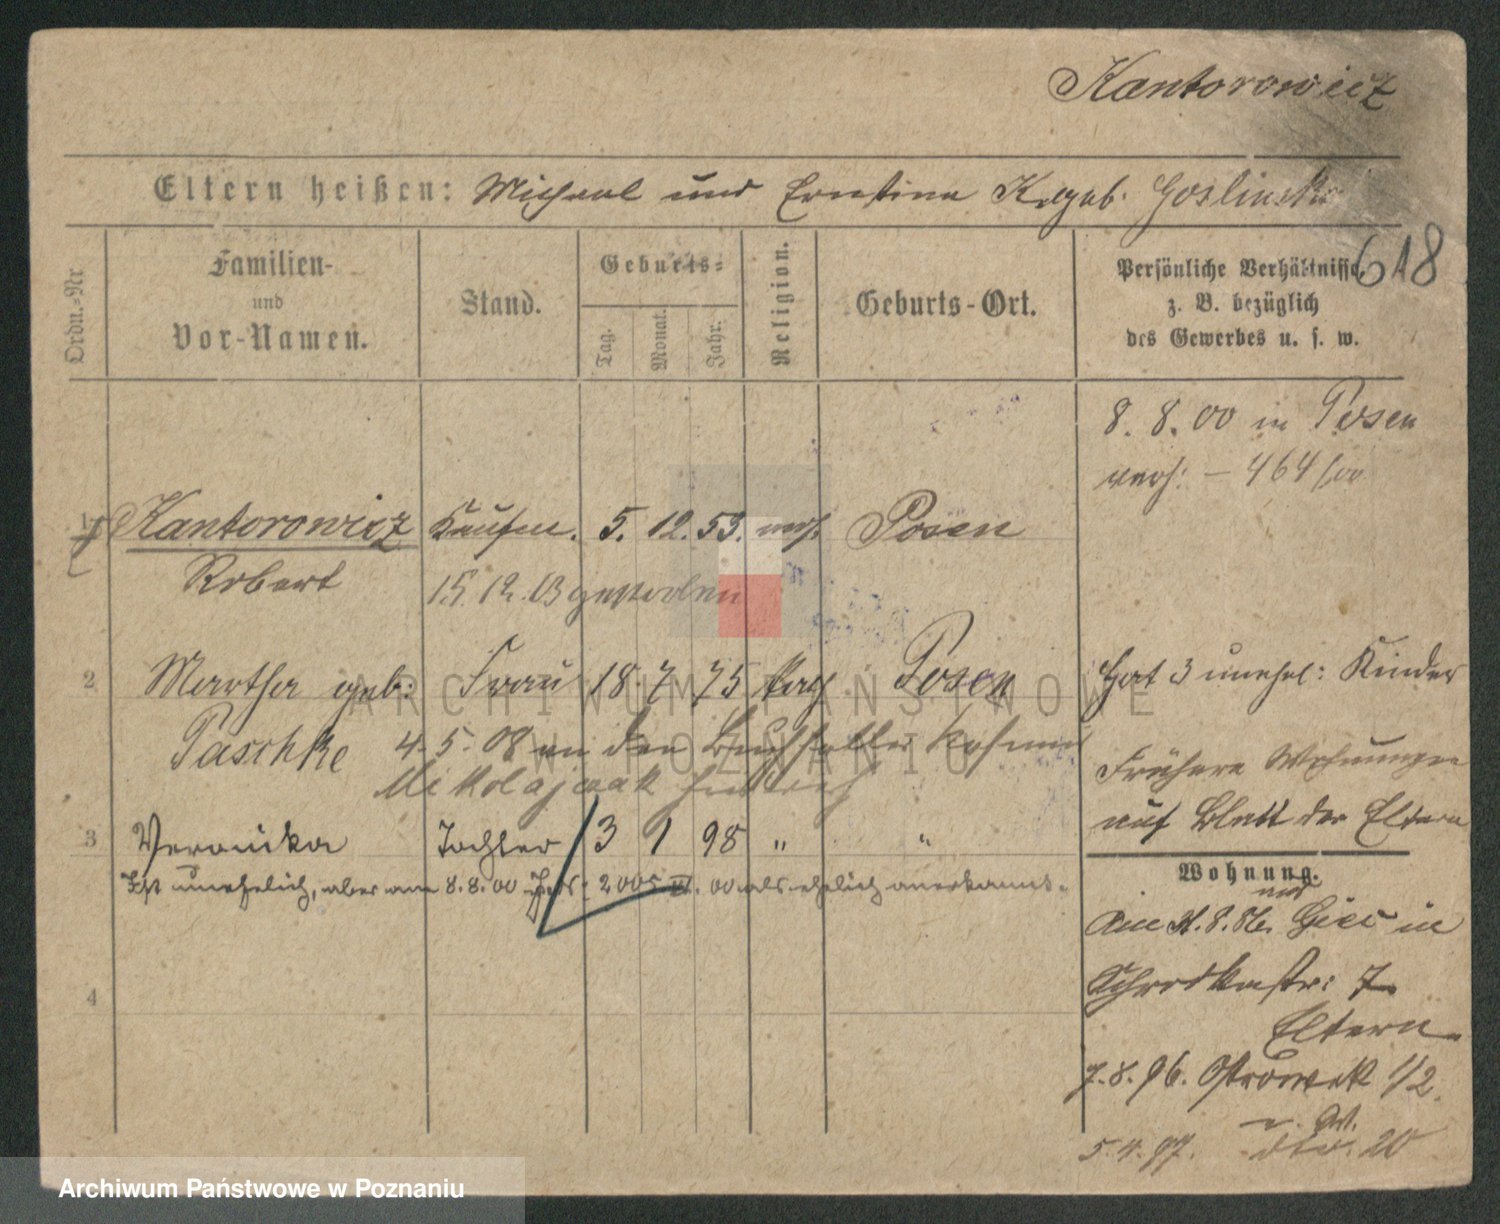 Kantorowicz
Eltern heißen: Michael und Ernestina K. geb. Goslinska
618
Ordn.-Nr
Familien-
und
Vor-Namen.
Stand.
Geburts-
Tag.
Monat.
Jahr.
Religion.
Geburts-Ort.
Persönliche Verhältnisse
z. B. bezüglich
des Gewerbes u. s. w.
8. 8. 00 in Posen
verh: – 464/00
1 Kantorowicz Kaufm. 5. 12. 53. mos. Posen
Robert 15. 12. 03 gestorben
2 Martha geb: Frau 18. 7 75 kath Posen
Hat 3 unehel: Kinder
Paschke 4. 5. 08 an den Buchhalter
Mikolajczak
Frühere Wohnungen
auf Blatt der Eltern
3 Veronika Tochter 3 1 98 " "
Ist unehelich, aber am 8. 8. 00 als ehelich anerkannt.
4
Wohnung.
in
7.
Eltern
7. 8. 96. Ostrowek 1/2
5. 4. 97. dto. 20
ARCHIWUM PAŃSTWOWE
W POZNANIU
Archiwum Państwowe w Poznaniu